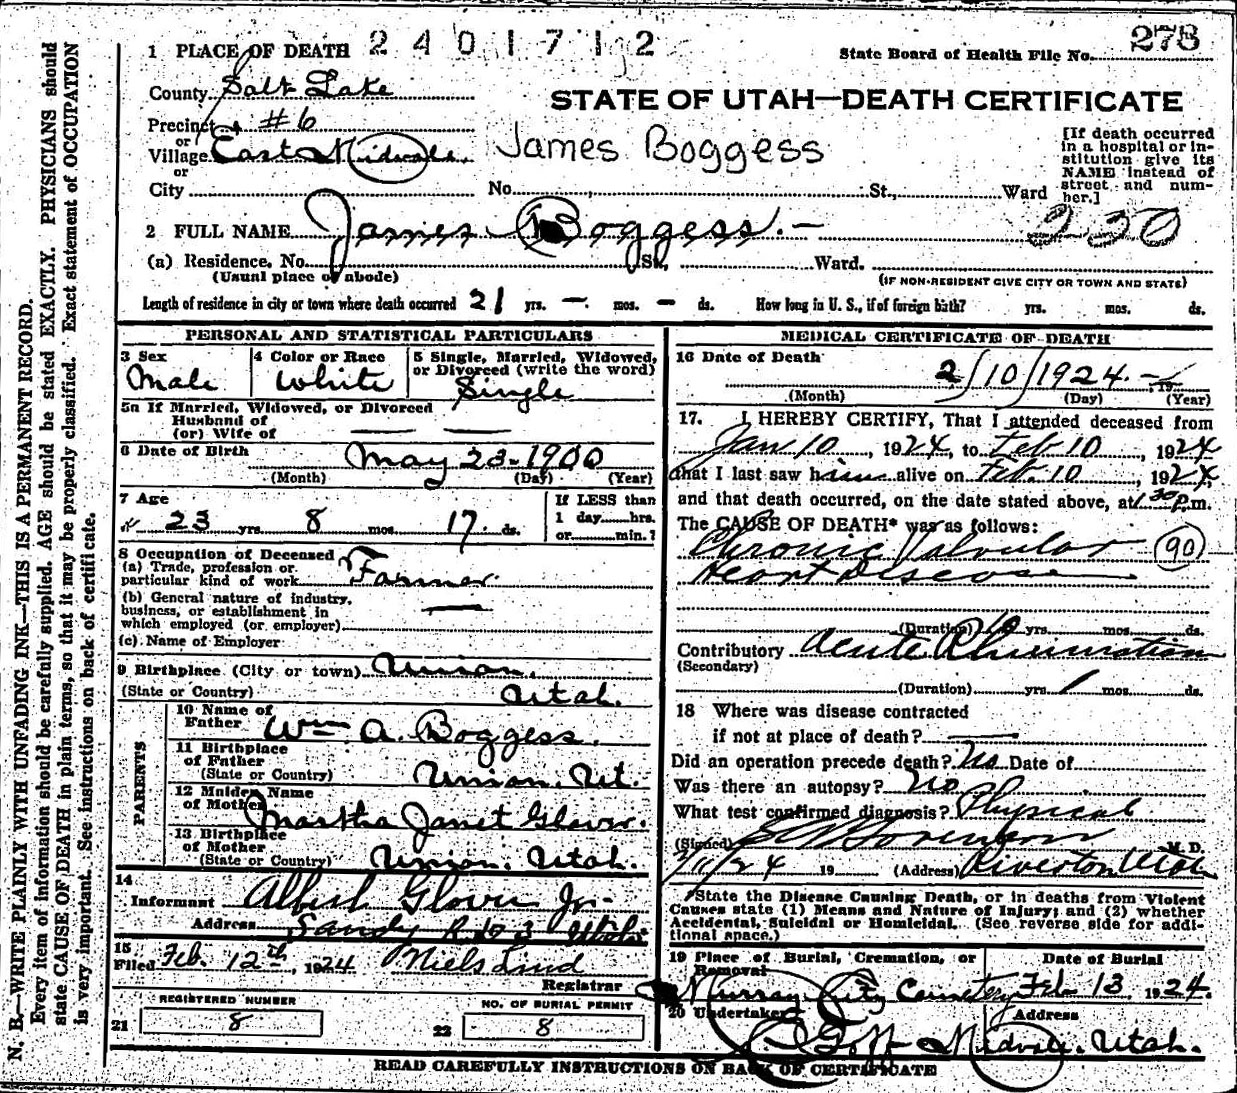 2401712
278
1 PLACE OF DEATH
State Board of Health File No.
County Salt Lake
STATE OF UTAH—DEATH CERTIFICATE
Precinct #6
or
Village East Midvale
James Boggess
[If death occurred in a hospital or institution give its NAME instead of street and number.]
or
City No. St., Ward
2 FULL NAME James Boggess.—
230
(a) Residence. No. St., Ward.
(Usual place of abode)
(IF NON-RESIDENT GIVE CITY OR TOWN AND STATE)
Length of residence in city or town where death occurred 21 yrs. — mos. — ds. How long in U. S., if of foreign birth? yrs. mos. ds.
PERSONAL AND STATISTICAL PARTICULARS
3 Sex
Male
4 Color or Race
White
5 Single, Married, Widowed, or Divorced (write the word)
Single
5a If Married, Widowed, or Divorced
Husband of
(or) Wife of — —
6 Date of Birth
May 23-1900
(Month) (Day) (Year)
7 Age
23 yrs. 8 mos. 17 ds.
If LESS than
1 day......hrs.
or......min.?
8 Occupation of Deceased
(a) Trade, profession or particular kind of work Farmer
(b) General nature of industry, business, or establishment in which employed (or employer) —
(c) Name of Employer
9 Birthplace (City or town) Union,
(State or Country) Utah.
PARENTS
10 Name of Father Wm A. Boggess.
11 Birthplace of Father
(State or Country) Union, Ut.
12 Maiden Name of Mother Martha Janet Glover.
13 Birthplace of Mother
(State or Country) Union, Utah.
14
Informant Albert Glover Jr-
Address Sandy R 3 Utah
15
Filed Feb. 12th, 1924 Niels Lind
Registrar
REGISTERED NUMBER
21 8
NO. OF BURIAL PERMIT
22 8
MEDICAL CERTIFICATE OF DEATH
16 Date of Death
2/10/1924.— 19
(Month) (Day) (Year)
17. I HEREBY CERTIFY, That I attended deceased from
Jan 10, 1924, to Feb 10, 1924
that I last saw him alive on Feb. 10, 1924,
and that death occurred, on the date stated above, at 1 30 p.m.
The CAUSE OF DEATH* was as follows:
Chronic Valvular 90
Heart Disease
(Duration) 10 yrs. mos. ds.
Contributory Acute Rheumatism
(Secondary)
(Duration) yrs. 1 mos. ds.
18 Where was disease contracted
if not at place of death? —
Did an operation precede death? No Date of
Was there an autopsy? No
What test confirmed diagnosis? Physical
(Signed) Sorenson M. D.
2/11/24 19 (Address) Riverton Utah
*State the Disease Causing Death, or in deaths from Violent Causes state (1) Means and Nature of Injury; and (2) whether Accidental, Suicidal or Homicidal. (See reverse side for additional space.)
19 Place of Burial, Cremation, or Removal
Murray City Cemetery
Date of Burial
Feb 13 1924.
20 Undertaker
Goff
Address
Midvale. Utah.
READ CAREFULLY INSTRUCTIONS ON BACK OF CERTIFICATE
N. B.—WRITE PLAINLY WITH UNFADING INK—THIS IS A PERMANENT RECORD.
Every item of information should be carefully supplied. AGE should be stated EXACTLY. PHYSICIANS should
state CAUSE OF DEATH in plain terms, so that it may be properly classified. Exact statement of OCCUPATION
is very important. See instructions on back of certificate.